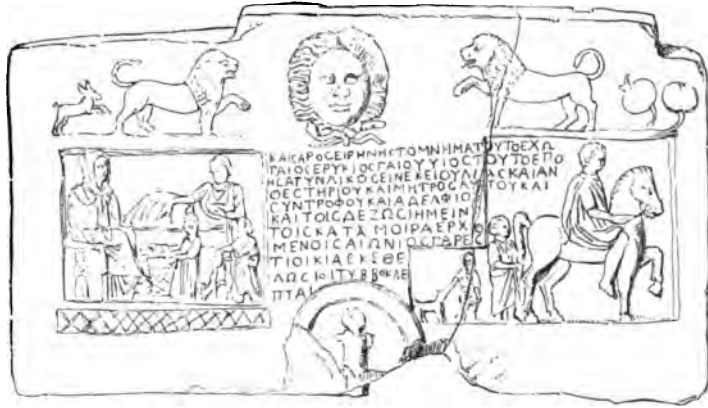 ΚΑΙCΑΡΟCΕΙΡΗΝΗCΤΟΜΝΗΜΑΤΟΥΤΟΕΧΩ
ΓΑΙΟCΕΡΥΚΙΟCΓΑΙΟΥΥΙΟCΤΟΥΤΟΕΠΟ
ΗCΑΓΥΝΑΙΚΟCΕΙΝΕΚΕΙΟΥΛΙΑCΚΑΙΑΝ
ΘΕCΤΗΡΙΟΥΚΑΙΜΗΤΡΟCΑΥΤΟΥΚΑΙ
CΥΝΤΡΟΦΟΥΚΑΙΑΔΕΛΦΙΟ
ΚΑΙΤΟΙCΔΕΖΩCΙΗΜΕΙΝ
ΤΟΙCΚΑΤΑΜΟΙΡΑΕΡΧ
ΜΕΝΟΙCΑΙΩΝΙΟCΓΑΡΕC
ΤΙΟΙΚΙΑΕΚΕΘΕ
ΛΩCΙΟΙΤΥΒΒΟΚΛΕ
ΠΤΑΙ